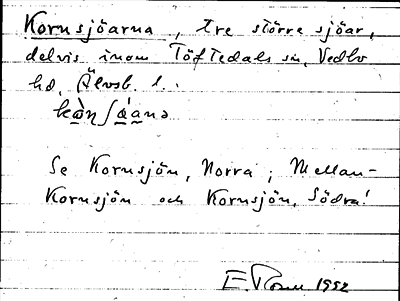 Kornsjöarna, tre större sjöar,
delvis inom Töftedals sn, Vedbo
hd, Älvsb. l..
Se Kornsjön, Norra; Mellan-
Kornsjön och Kornsjön, Södra!
E. 1952